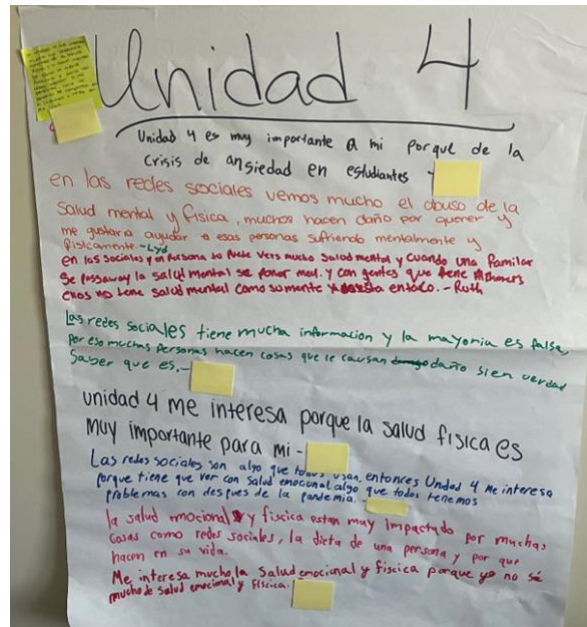 Unidad 4
Unidad 4 es muy importante a mi porque de la
Crisis de ansiedad en estudiantes -
en las redes sociales vemos mucho el abuso de la
Salud mental y fisica, muchos hacen daño por querer y
me gustaria ayudar a esas personas sufriendo mentalmente y
fisicamente. -Lyd
en las sociales y en Persona so Puede Vers mucho Salod mental y Cuando una familar
Se passaway la salud Mental se poner mal. y con gentes que tene
enos no tene salud mental Como su mente esta
entoto. - Ruth
Las redes sociales tiene mucha information y la mayonia es falsa,
Por eso muchas Personas hacen cosas que le causan daño sien verdad
Saber que es. -
unidad 4 me interesa porque la salud fisica es
muy importante para mi -
Las redes sociales son algo que usan, entonces Unidad 4 me interesa
porque tiene que ver con salud emocional algo que todos tenemos
problemas con despues de la pandemia. -
la salud emocional y fiscica estan muy impactado por muchas
cosas como redes sociales, la dieta de una persona y por que
hacen en su vida.
Me interesa mucho la Salud emocional y fiscica porque yo no sé
mucho de salud emocional y Fiscica.